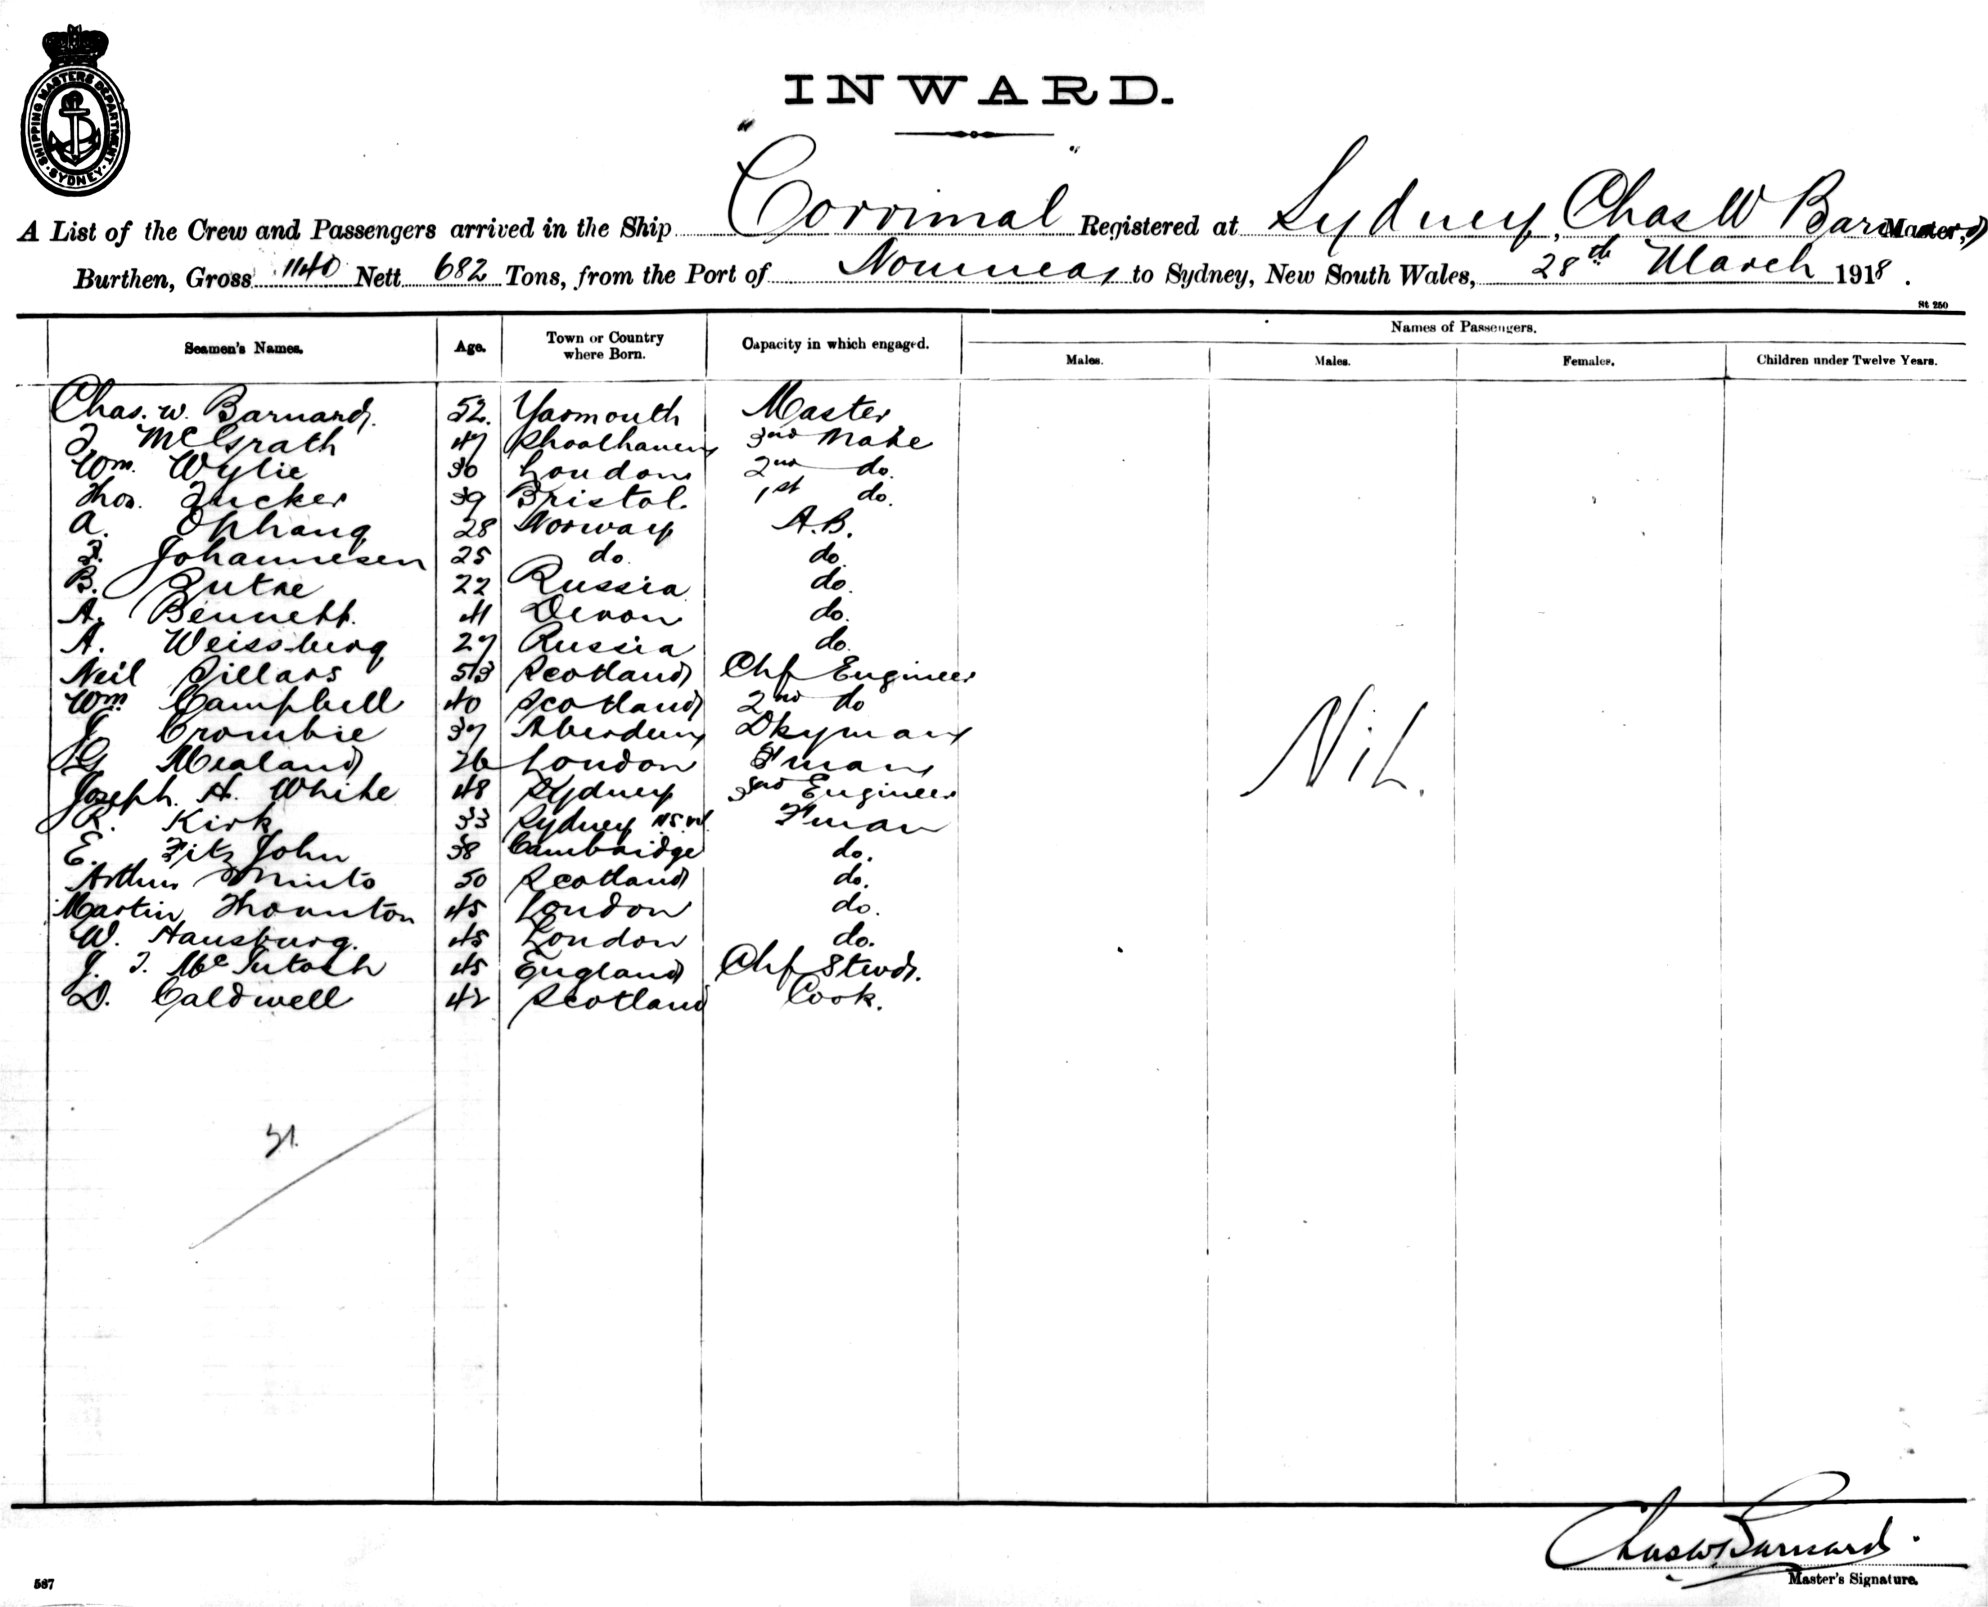 SHIPPING MASTERS DEPARTMENT
SYDNEY
INWARD.
A List of the Crew and Passengers arrived in the Ship "Corrimal" Registered at Sydney, Chas W Barnard Master,
Burthen, Gross 1140 Nett 682 Tons, from the Port of Noumea, to Sydney, New South Wales, 28th March 1918.
St 250
Seamen's Names. Age. Town or Country where Born. Capacity in which engaged. Names of Passengers.
Males. Males. Females. Children under Twelve Years.
Chas. W. Barnard. 52. Yarmouth Master
McGrath 47 Shoalhaven 3rd Mate
Wm. Wylie 30 London 2nd do.
Thos. Tucker 39 Bristol. 1st do.
A. Ophang 28 Norway A.B.
Johannesen 25 do do.
B. Rutke 22 Russia do.
A. Bennett. 41 Devon do.
A. Weissburg 27 Russia do.
Neil Sillars 53 Scotland Chf Engineer
Wm Campbell 40 Scotland 2nd do
J Crombie 37 Aberdeen Dkyman
G Mealand 26 London Fman
Joseph. H. White 48 Sydney 3rd Engineer
R. Kirk 33 Sydney N.S.W. Fman
E. Fitz John 38 Cambridge do.
Arthur Minto 50 Scotland do.
Martin Thornton 45 London do.
W. Hausburg. 45 London do.
J. T. McIntosh 45 England Chf Stwd.
D. Caldwell 42 Scotland Cook.
NiL.
21.
Chas W Barnard
Master's Signature.
567